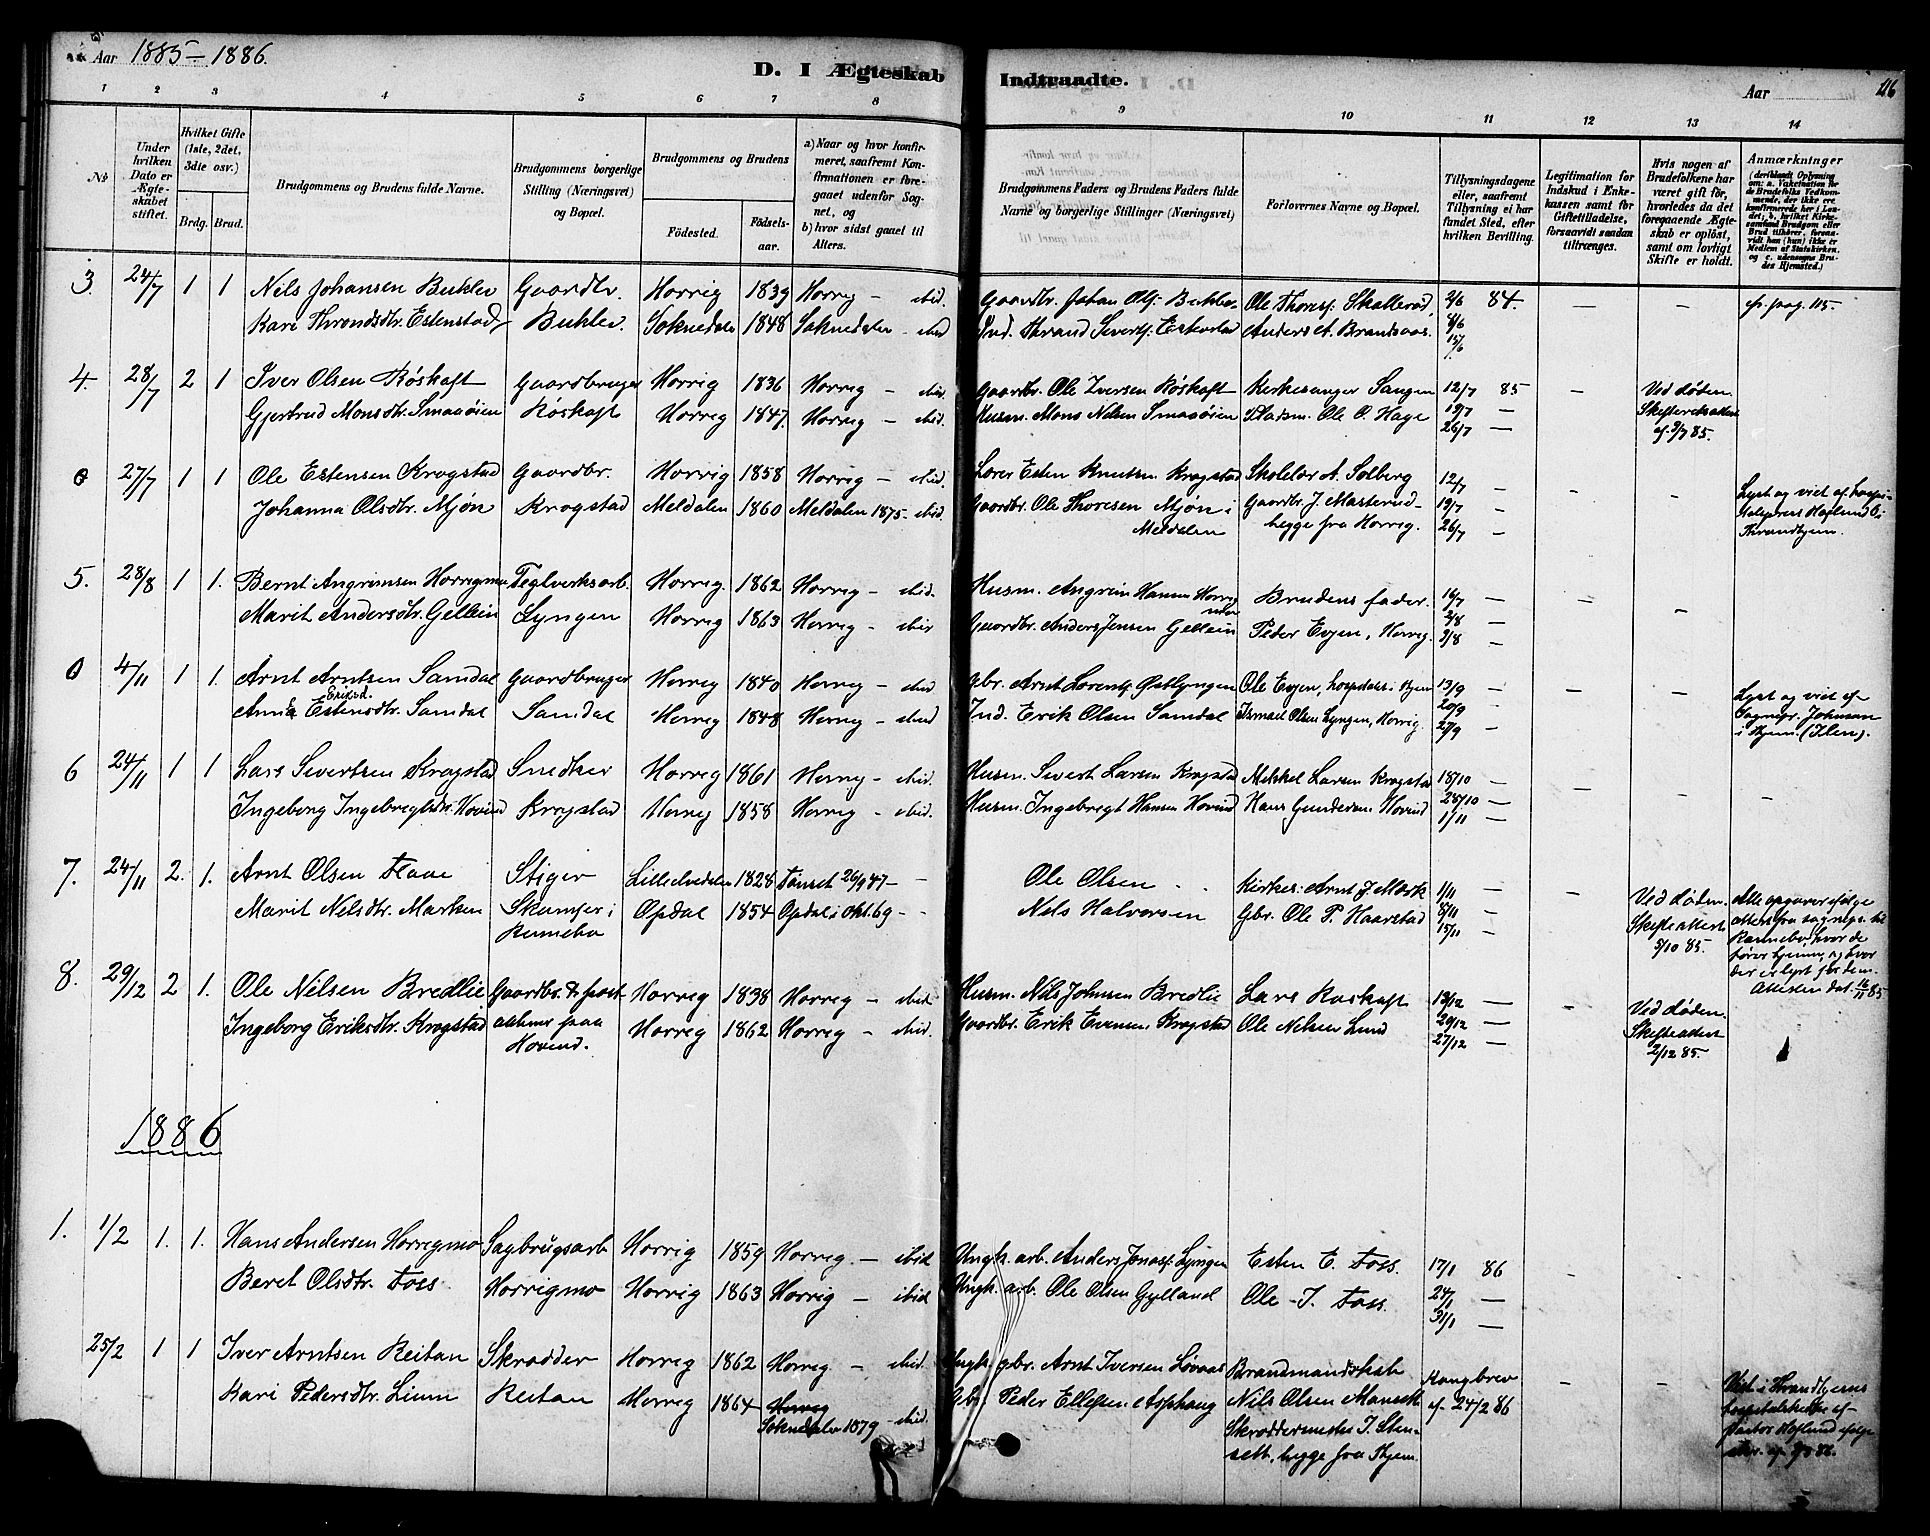 Aar 1885 – 1886.
D. I Ægteskab Indtraadte.
Aar 116
1 2 3 4 5 6 7 8 9 10 11 12 13 14
No
Under hvilken Dato er Ægteskabet stiftet.
Hvilket Gifte (1ste, 2det, 3die osv.)
Brdg. Brud.
Brudgommens og Brudens fulde Navne.
Brudgommens borgerlige Stilling (Næringsvei) og Bopæl.
Brudgommens og Brudens
Födested. Födselsaar.
a) Naar og hvor konfirmeret, saafremt Konfirmationen er foregaaet udenfor Sognet, og
b) hvor sidst gaaet til Alters.
Brudgommens Faders og Brudens Faders fulde Navne og borgerlige Stillinger (Næringsvei)
Forlovernes Navne og Bopæl.
Tillysningsdagene eller, saafremt Tillysning ei har fundet Sted, efter hvilken Bevilling.
Legitimation for Indskud i Enkekassen samt for Giftetilladelse, forsaavidt saadan tiltrænges.
Hvis nogen af Brudefolkene har været gift för, hvorledes da det foregaaende Ægteskab er oplöst, samt om lovligt Skifte er holdt.
Anmærkninger (deriblandt Oplysning om: a. Vaccination for de Brudefolks Vedkommende, der ikke ere konfirmerede her i Landet; b. hvilket Kirkesamfund Brudgom eller Brud tilhører, forsaavidt han (hun) ikke er Medlem af Statskirken, og c. udensogns Brudes Hjemsted.)
3. 24/7 1 1 Nils Johansen Buklev Gaardbr. Horrig 1839 Horrig – ibid. Gaardbr. Johan Ols. Buklev Ole Thores. Skallerud, 2/6 84. – – cfr. pag. 115.
Kari Throndsdtr. Estenstad Buklev. Soknedalen 1848 Soknedalen – ibid Ind. Thrond Siverts. Estenstad Anders A. Brandsaas. 8/6
15/6
4. 28/7 2 1 Iver Olsen Röskaft Gaardbruger Horrig 1836 Horrig – ibid. Gaardbr. Ole Iversen Röskaft Kirkesanger Sangen 12/7 85 – Ved döden.
Gjertrud Monsdtr. Smaaöien Röskaft Horrig 1847. Horrig – ibid. Husm. Mons Nilsen Smaaöien Pladsm. Ole O. Hage 19/7 – Skifteretsattest
26/7 – af 3/7 85.
0 27/7 1 1 Ole Estensen Krogstad Gaardbr. Horrig 1858 Horrig – ibid. Lærer Esten Knutsen Krogstad Skolelær A. Solberg 12/7 – – – Lyst og viet af hospi-
Johanna Olsdtr. Mjön Krogstad Meldalen 1860 Meldalen 1875 – ibid. Gaardbr. Ole Thoresen Mjön i Gaardbr. J. Masterud – 19/7 – talsprest Höflund i
Meldalen begge fra Horrig. 26/7 – Throndhjem.
5. 28/8 1 1. Bernt Angrimsen Horrigmo Teglverksarb. Horrig. 1862 Horrig – ibid. Husm. Angrim Hansen Horrig Brudens fader. 16/7 – – –
Marit Andersdtr. Gellein Lyngen Horrig 1863 Horrig – ibid Gaardbr. Anders Jensen Gellein Peder Evjen, Horrig. 2/8 –
3/8 –
0 4/11 1 1. Arnt Arntsen Samdal Gaardbruger Horrig 1840 Horrig – ibid Gbr. Arnt Lorents. Østlyngen Ole Evjen, hospitalet i Thjem 13/9 – – – Lyst og viet af
Eriksd.
Anna Estensdtr. Samdal Samdal Horrig 1848 Horrig – ibid Ind. Erik Olsen Samdal Ismael Olsen Lyngen, Horrig. 20/9 – Sognepr. Johnson
27/9 – i Thjem. (Ilen).
6 24/11 1 1 Lars Sivertsen Krogstad Snedker Horrig 1861 Horrig – ibid. Husm. Sivert Larsen Krogstad Mikkel Larsen Krogstad 18/10 – – – –
Ingeborg Ingebregtsdtr. Hovind Krogstad Horrig 1858 Horrig – ibid. Husm. Ingebregt Hansen Hovind Hans Gundersen Hovind 25/10 –
1/11 –
7. 24/11 2. 1. Arnt Olsen Flaae Stiger Lille Elvedalen 1828 Tönset 26/9 47 – – Ole Olsen Kirkes. Arnt J. Mork 1/11 – – Ved döden. Alle opgaver ifølge
Marit Nilsdtr. Marken Skamfer i Opdal 1854 Opdal i Okt. 69 – – Nils Halvorsen Gbr. Ole P. Haarstad 8/11 – Skifteattest attest fra sognepr. til
Rennebo 15/11 – 5/10 85. Rennebo, hvor de
hører hjemme, og hvor
der er lyst for dem.
Attesten dat. 16/11 85
8. 29/12 2 1. Ole Nilsen Bredlie Gaardbr. & post- Horrig 1838 Horrig – ibid. Husm. Nils Johnsen Bredlie Lars Roskaft 13/12 – – Ved döden.
Ingeborg Eriksdtr. Krogstad aabner paa Horrig 1862 Horrig – ibid. Gaardbr. Erik Evensen Krogstad Ole Nilsen Lund 20/12 – Skifteattest
Hovind. 27/12 – 2/12 85.
1886
1. 1/2 1. 1. Hans Andersen Horrigmo Sagbrugsarb Horrig 1859 Horrig. – ibid Ungk. arb. Anders Jonas. Lyngen Esten E. Foss. 17/1 86 – –
Beret Olsdtr. Foss Horrigmo Horrig 1863 Horrig – ibid Ungk. arb. Ole Olsen Gylland Ole J. Foss. 24/1 –
31/1 –
25/2 1 1 Iver Arntsen Reitan Skrædder Horrig 1862 Horrig – ibid. Ungk. gbr. Arnt Iversen Løvaas Brandmandskab Kongebrev – – Viet i Throndhjems
Kari Pedersdtr. Lium Reitan Horrig 1864 Horrig Gbr. Peder Ellefsen Asphaug Nils Olsen Manseth af 24/2 86 hospitalskirke af
Soknedalen 1879 – ibid. Skræddermester I. Sten- pastor Höflund ifølge
seth, begge fra Thjem.